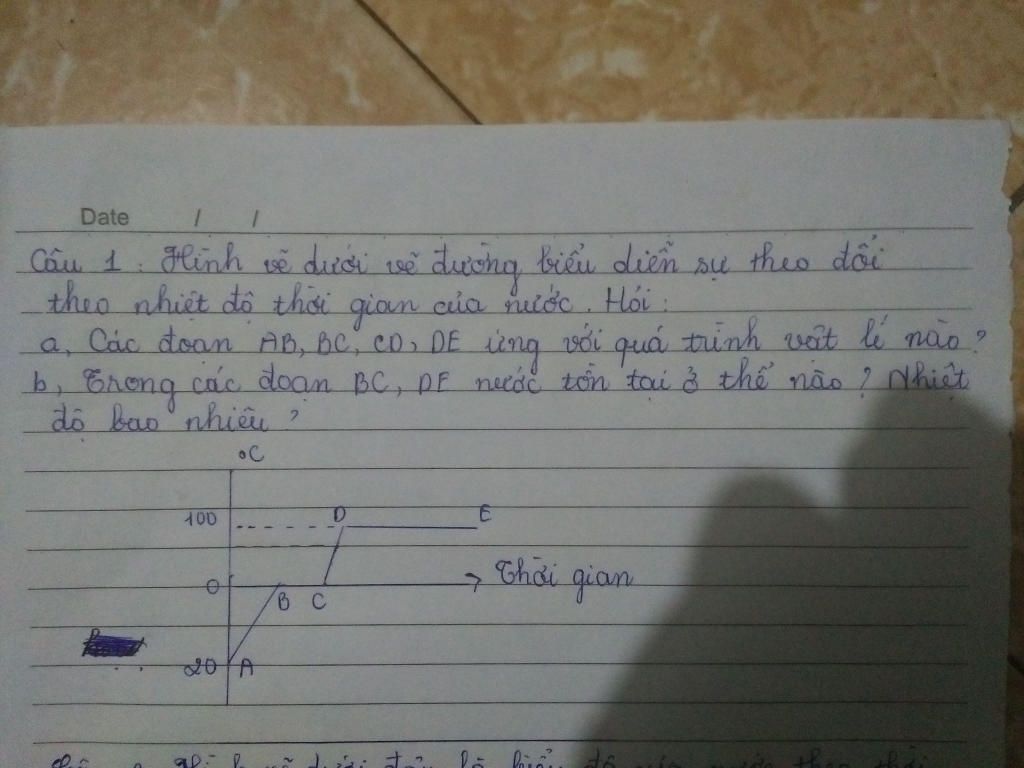 Date / /
Câu 1 : Hình vẽ dưới vẽ đường biểu diễn sự theo đổi
theo nhiệt độ thời gian của nước. Hỏi :
a, Các đoạn AB, BC, CD, DE ứng với quá trình vật lí nào ?
b, Trong các đoạn BC, DE nước tồn tại ở thể nào ? Nhiệt
độ bao nhiêu ?
°C
100 D E
0 B C Thời gian
20 A